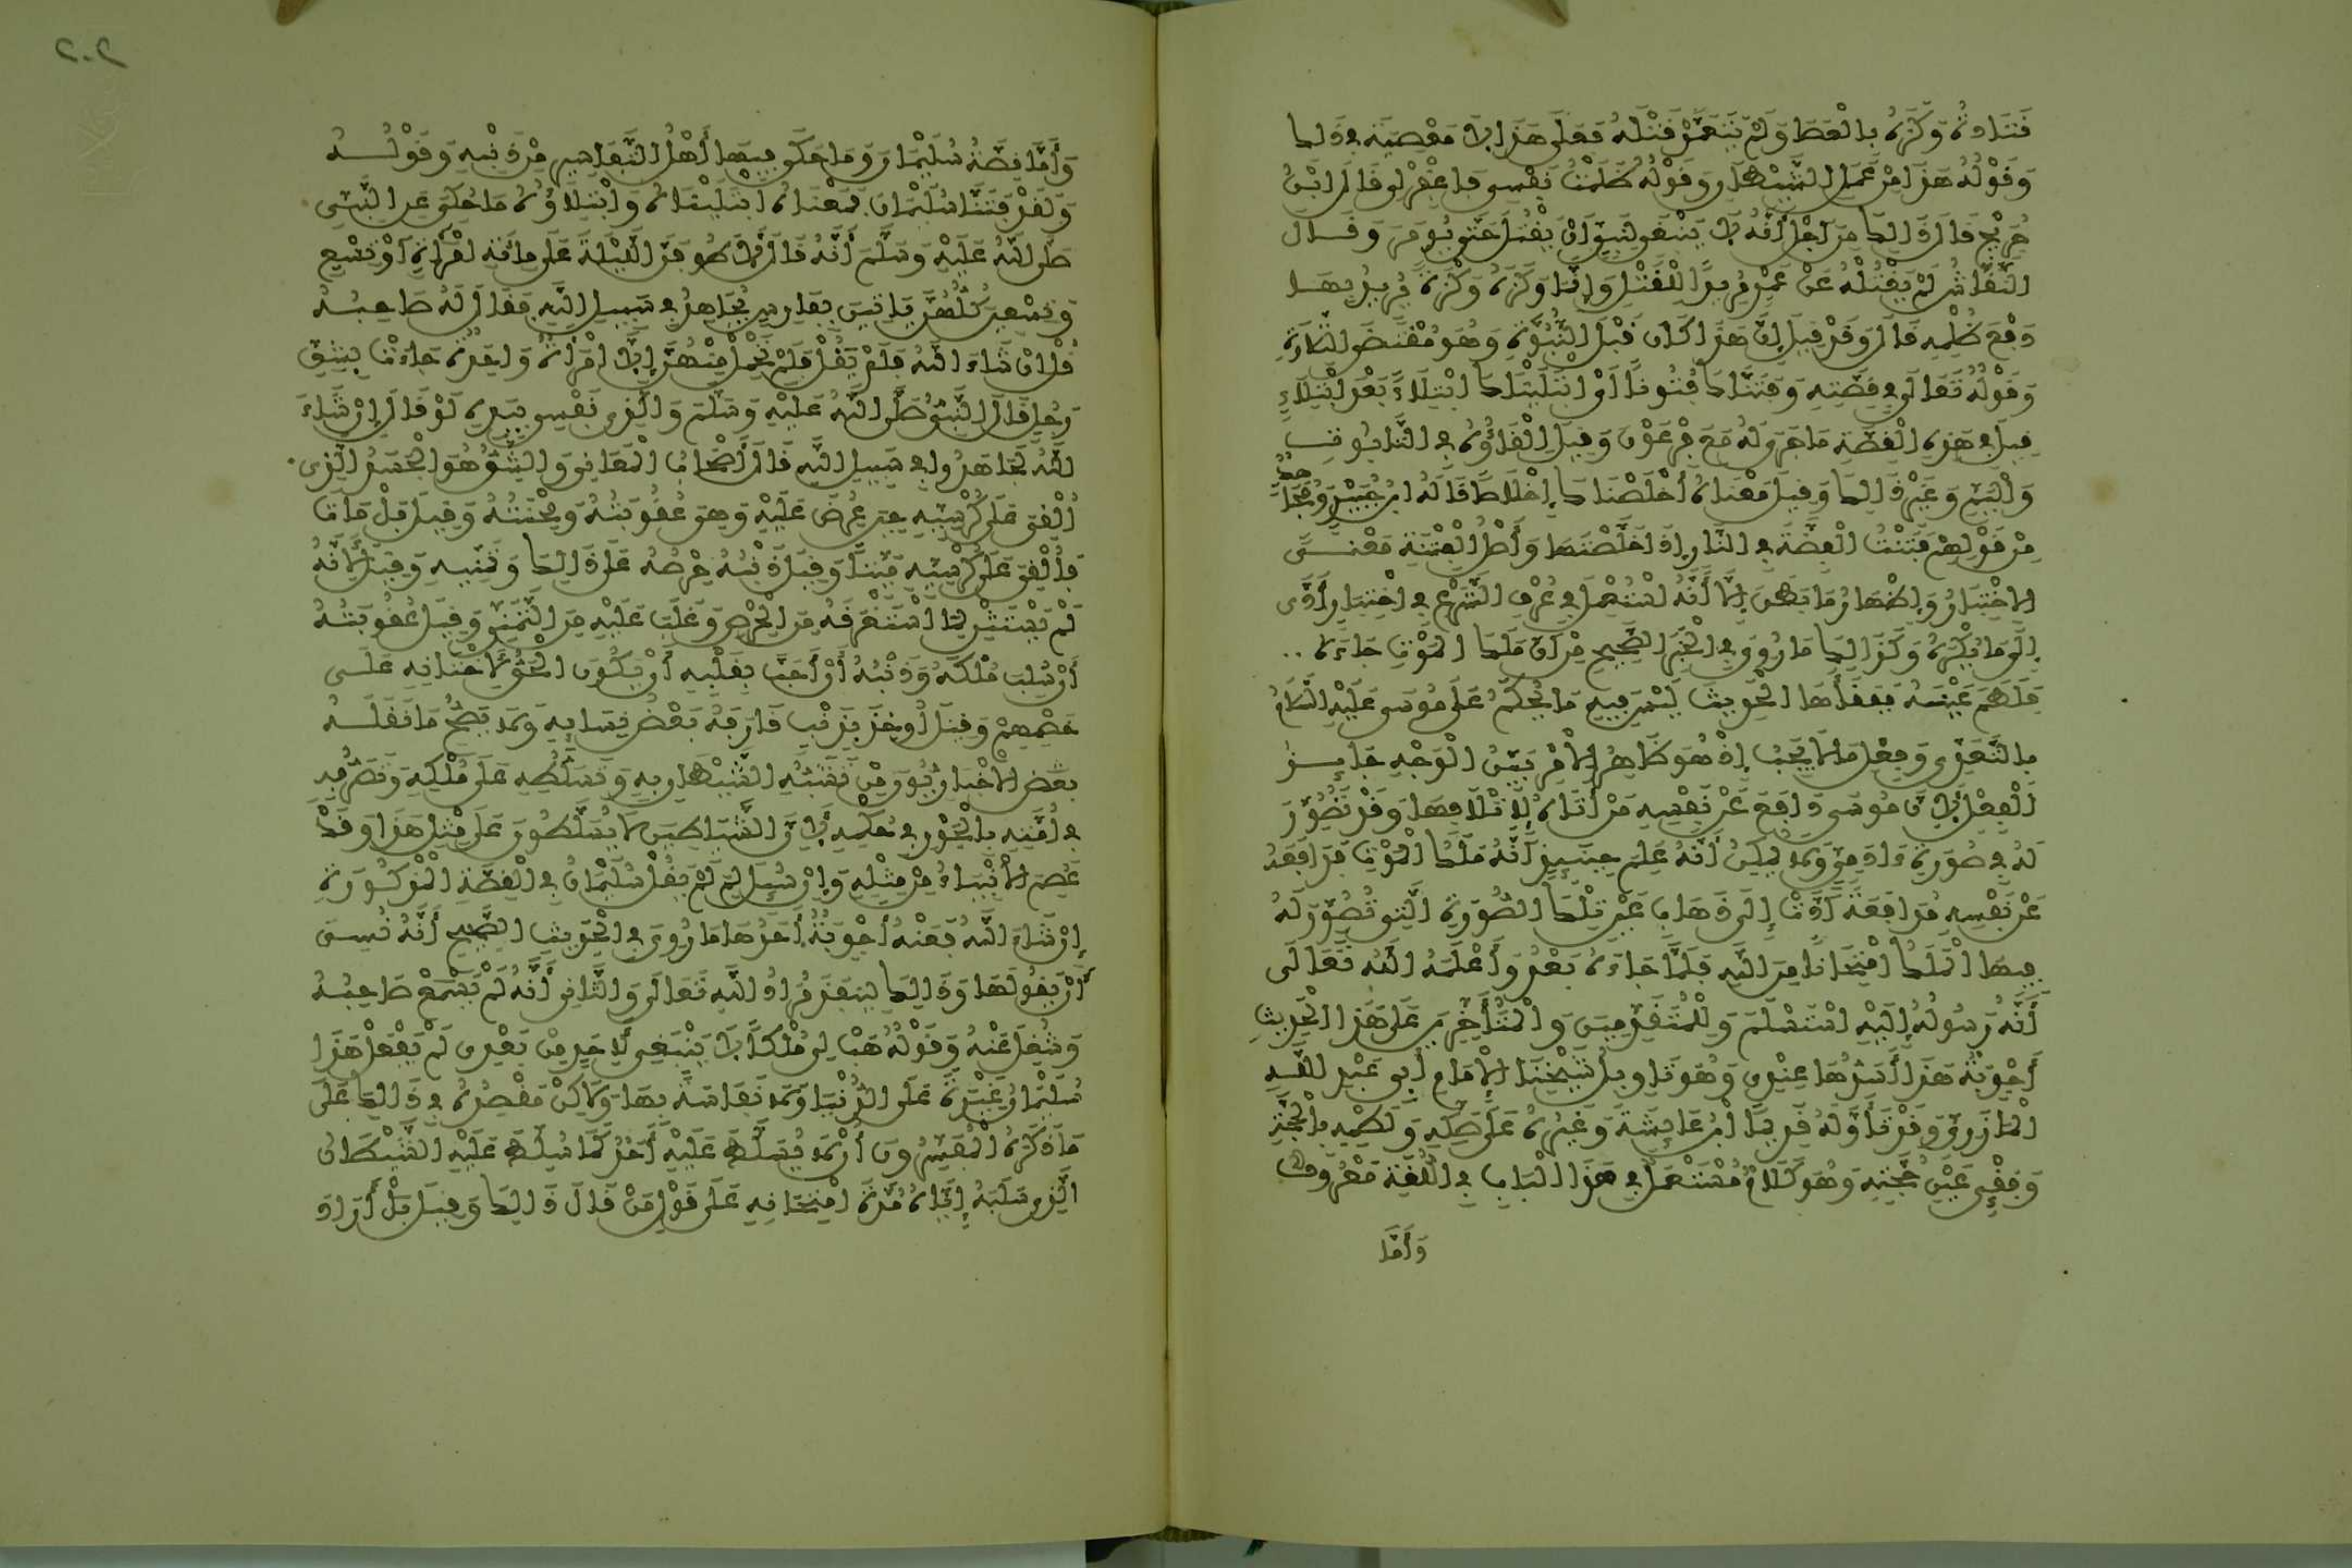 قتادة وكزه بالعصا ولم يتعمد قتله فعلى هذا لا معصية في ذلك
وقوله هذا من عمل الشيطان وقوله ظلمت نفسي فاغفر لي قال ابن
جريج قال ذلك من أجل أنه لا ينبغي لنبي أن يقتل حتى يؤمر وقال
النقاش لم يقتله عن عمد مريدا للقتل وإنما وكزه وكزة يريد بها
دفع ظلمه قال وقد قيل إن هذا كان قبل النبوة وهو مقتضى التلاوة
وقوله تعالى في قصته وفتناك فتونا أي ابتليناك ابتلاء بعد ابتلاء
قيل في هذه القصة ما جرى له مع فرعون وقيل إلقاؤه في التابوت
واليم وغير ذلك وقيل معناه أخلصناك إخلاصا قاله ابن جبير ومجاهد
من قولهم فتنت الفضة في النار إذا خلصتها وأصل الفتنة معنى
الاختبار وإظهار ما بطن إلا أنه استعمل في عرف الشرع في اختبار أدى
إلى ما يكره وكذلك ما روي في الخبر الصحيح من أن ملك الموت جاءه ..
فلطم عينه ففقأها الحديث ليس فيه ما يحكم على موسى عليه السلام
بالتعدي وفعل ما لا يجب إذ هو ظاهر الأمر بين الوجه جائز
الفعل لأن موسى دافع عن نفسه من أتاه لإتلافها وقد تصور
له في صورة آدمي ولا يمكن أنه علم حينئذ أنه ملك الموت فدافعه
عن نفسه مدافعة أدت إلى ذهاب عين تلك الصورة التي تصور له
فيها الملك امتحانا من الله فلما جاءه بعد وأعلمه الله تعالى
أنه رسوله إليه استسلم وللمتقدمين والمتأخرين على هذا الحديث
أجوبة هذا أسدها عندي وهو تأويل شيخنا الإمام أبي عبد الله
المازري وقد تأوله قديما ابن عائشة وغيره على صكه ولطمه بالحجة
وفقء عين حجته وهو كلام مستعمل في هذا الباب في اللغة معروف
وأما
٢٠٢
وأما قصة سليمان وما حكى فيها أهل التفاسير من ذنبه وقوله
ولقد فتنا سليمان فمعناه ابتليناه وابتلاؤه ما حكي عن النبي
صلى الله عليه وسلم أنه قال لأطوفن الليلة على مائة امرأة أو تسع
وتسعين كلهن يأتين بفارس يجاهد في سبيل الله فقال له صاحبه
قل إن شاء الله فلم يقل فلم تحمل منهن إلا امرأة واحدة جاءت بشق
رجل قال النبي صلى الله عليه وسلم والذي نفسي بيده لو قال إن شاء
الله لجاهدوا في سبيل الله قال أصحاب المعاني والشق هو الجسد الذي
ألقي على كرسيه حين عرض عليه وهي عقوبته ومحنته وقيل بل مات
فألقي على كرسيه ميتا وقيل ذنبه حرصه على ذلك وتمنيه وقيل لأنه
لم يستثن لما استغرقه من الحرص وغلب عليه من التمني وقيل عقوبته
أن سلب ملكه وذنبه أن أحب بقلبه أن يكون الحق لأختانه على
خصمهم وقيل أوخذ بذنب قارفه بعض نسائه ولا يصح ما نقله
بعض الأخباريون من تشبه الشيطان به وتسلطه على ملكه وتصرفه
في أمته بالجور في حكمه لأن الشياطين لا يسلطون على مثل هذا وقد
عصم الأنبياء من مثله وإن سئل لم لم يقل سليمان في القصة المذكورة
إن شاء الله فعنه أجوبة أحدها ما روي في الحديث الصحيح أنه نسي
أن يقولها وذلك لينفذ مراد الله تعالى والثاني أنه لم يسمع صاحبه
وشغل عنه وقوله هب لي ملكا لا ينبغي لأحد من بعدي لم يفعل هذا
سليمان غيرة على الدنيا ولا نفاسة بها ولاكن مقصده في ذلك على
ما ذكره المفسرون أن لا يسلط عليه أحد كما سلط عليه الشيطان
الذي سلبه إياه مدة امتحانه على قول من قال ذلك وقيل بل أراد